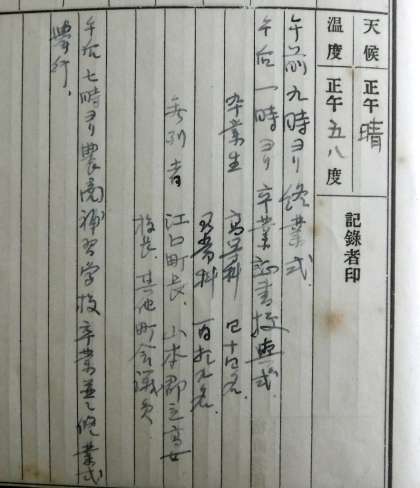 天候 正午 晴
溫度 正午 五八 度
記錄者印
午前九時ヨリ終業式.
午后一時ヨリ卒業証書授与式
卒業生 高等科 四十四名.
尋常科 百拾九名.
参列者 江口町長. 山本郡立高女
校長 其他町会議員
午后七時ヨリ農商補習学校卒業並ニ修業式
挙行,